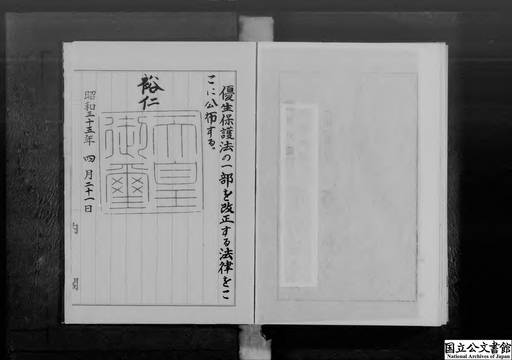 優生保護法の一部を改正する法律をこ
こに公布する。
裕仁
天皇
御璽
昭和三十五年 四月二十一日
国立公文書館
National Archives of Japan